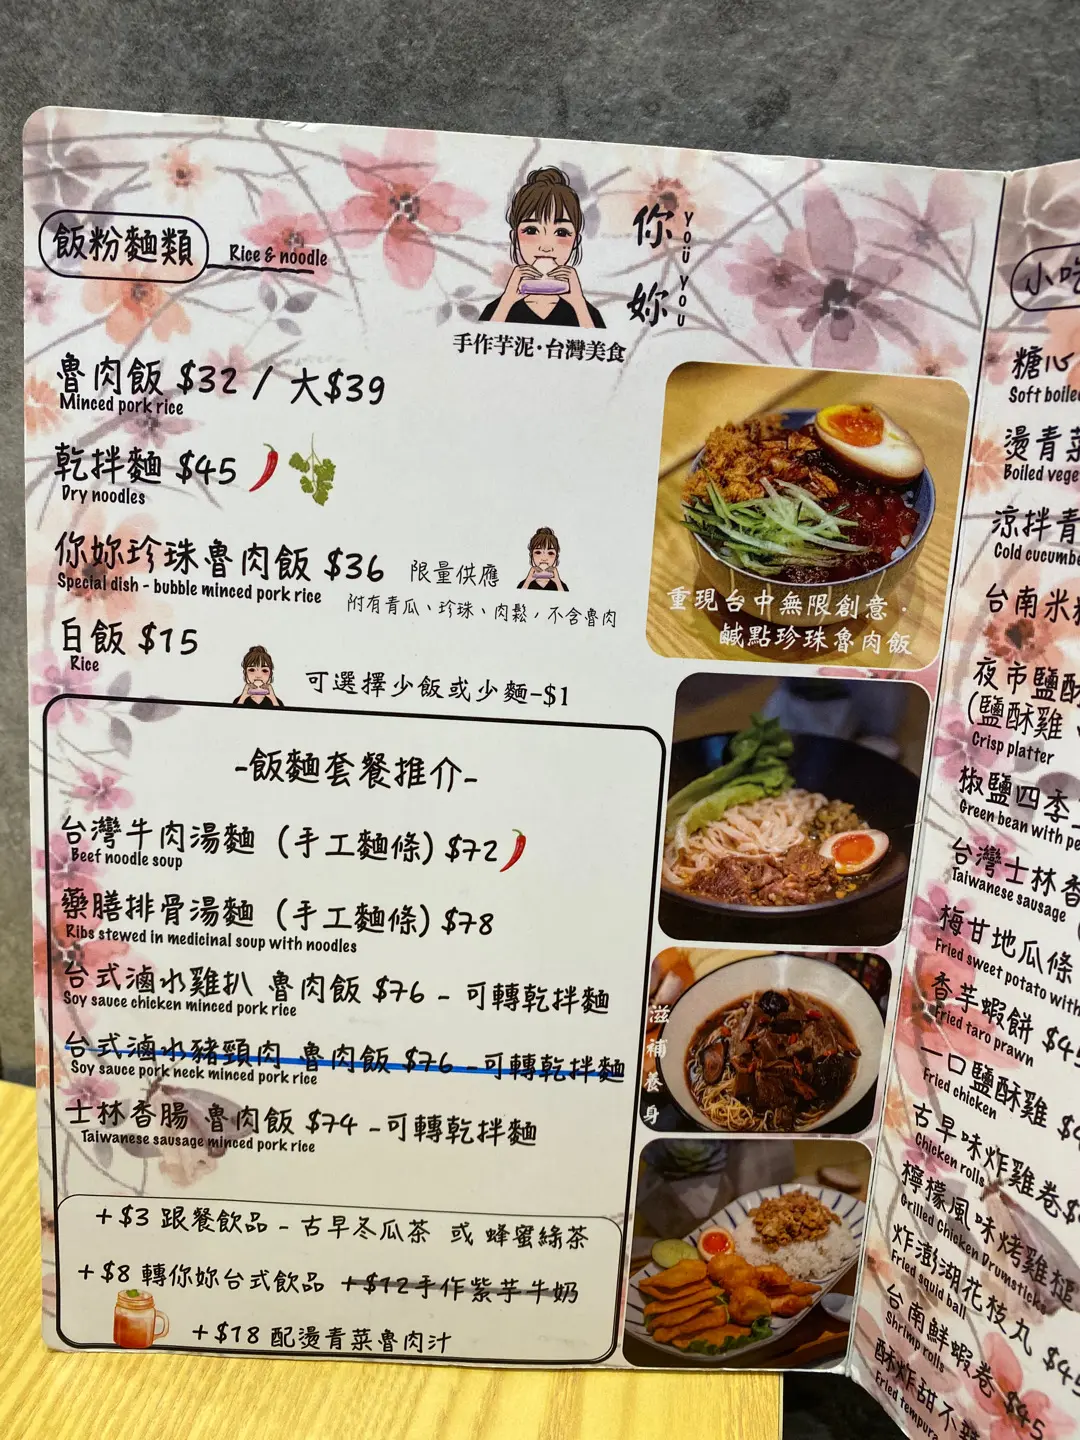 飯粉麵類 Rice & noodle
你妳 YOU YOU
手作芋泥·台灣美食
魯肉飯 $32 / 大$39
Minced pork rice
乾拌麵 $45
Dry noodles
你妳珍珠魯肉飯 $36 限量供應
Special dish - bubble minced pork rice
附有青瓜、珍珠、肉鬆，不含魯肉
白飯 $15
Rice
可選擇少飯或少麵-$1
-飯麵套餐推介-
台灣牛肉湯麵 (手工麵條) $72
Beef noodle soup
藥膳排骨湯麵 (手工麵條) $78
Ribs stewed in medicinal soup with noodles
台式滷水雞扒 魯肉飯 $76 - 可轉乾拌麵
Soy sauce chicken minced pork rice
台式滷水豬頸肉 魯肉飯 $76 - 可轉乾拌麵
Soy sauce pork neck minced pork rice
士林香腸 魯肉飯 $74 - 可轉乾拌麵
Taiwanese sausage minced pork rice
+$3 跟餐飲品 - 古早冬瓜茶 或 蜂蜜綠茶
+$8 轉你妳台式飲品 +$12手作紫芋牛奶
+$18 配燙青菜魯肉汁
重現台中無限創意·
鹹點珍珠魯肉飯
滋補養身
小吃
糖心
Soft boiled
燙青菜
Boiled vege
涼拌青
Cold cucumbe
台南米
夜市鹽酥
(鹽酥雞
Crisp platter
椒鹽四季
Green bean with pe
台灣士林香
Taiwanese sausage
梅甘地瓜條
Fried sweet potato with
香芋蝦餅 $45
Fried taro prawn
一口鹽酥雞 $4
Fried chicken
古早味炸雞卷 $
Chicken rolls
檸檬風味烤雞槌
Grilled Chicken Drumsticks
炸澎湖花枝丸 $45
Fried squid ball
台南鮮蝦卷 $45
Shrimp rolls
酥炸甜不辣
Fried tempura